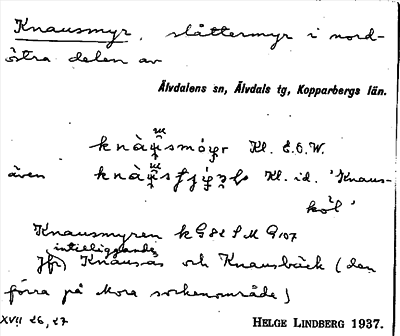 Knausmyr, slåttermyr i nord-
östra delen av
Älvdalens sn, Älvdals tg, Kopparbergs län.
Kl. E.O.W.
även Kl. id. 'Knaus-
köl'
Knausmyren k G 82 S M G 107
intilliggande
Jfr Knausås och Knausbäck (den
förra på Mora sockenområde)
XVII 26, 27
HELGE LINDBERG 1937.